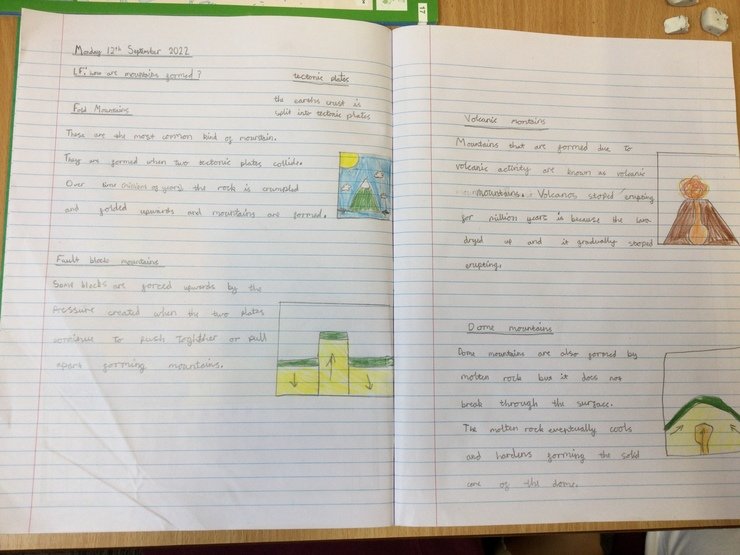 17
Monday 12th September 2022
L.F: How are mountains formed?
tectonic plates
the earths crust is
split into tectonic plates
Fold Mountains
These are the most common kind of mountain.
They are formed when two tectonic plates collide.
Over time (millions of years), the rock is crumpled
and folded upwards and mountains are formed.
Fault block mountains
Some blocks are forced upwards by the
Pressure created when the two plates
continue to Push Toghther or pull
apart forming mountains.
Volcanic montains
Mountains that are formed due to
volcanic activity are known as volcanic
mountains. Volcanos stoped erupting
for million years is because the lava
dryed up and it gradually stoped
erupting.
Dome mountains
Dome mountains are also formed by
molten rock but it does not
break through the surface.
The molten rock eventually cools
and hardens forming the solid
cone of the dome.